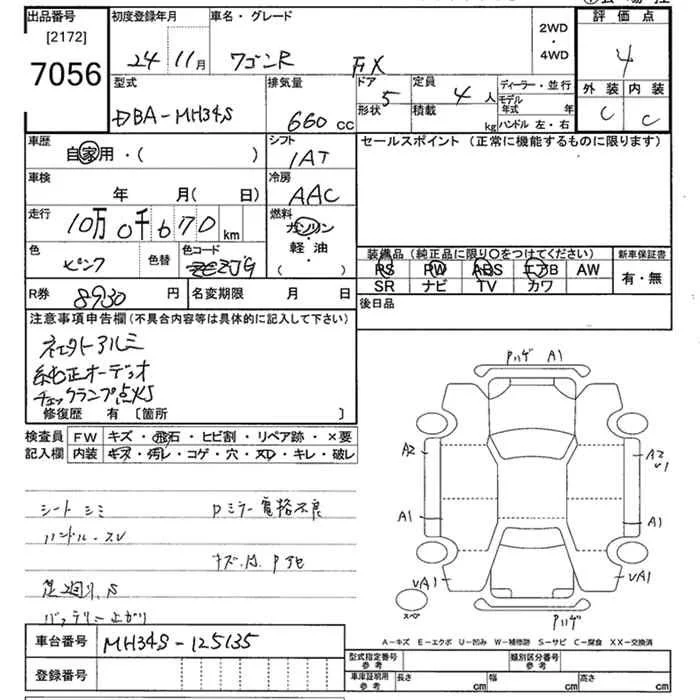 出品番号 初度登録年月 車名・グレード 2WD・4WD 評価点
[2172]
7056 24 11月 ワゴンR FX 4
型式 排気量 ドア 5 定員 4人 ディーラー・並行 外装 内装
DBA-MH34S 660CC 形状 積載 kg モデル年式 年 C C
ハンドル 左・右
車歴 自家用・( ) シフト セールスポイント (正常に機能するものに限ります)
1AT
車検 年 月( 日) 冷房
AAC
走行 10万0千670km 燃料
ガソリン
軽油
( )
色 ピンク 色替 色コード ZJG
装備品 (純正品に限り○をつけてください) 新車保証書
PS PW ABS エアB AW 有・無
SR ナビ TV カワ
R券 8930円 名変期限 月 日 後日品
注意事項申告欄 (不具合内容等は具体的に記入して下さい)
純正オーディオ
チェックランプ点灯
修復歴 有 [箇所 ]
検査員 FW キズ・飛石・ヒビ割・リペア跡・×要
記入欄 内装 キズ・汚レ・コゲ・穴・スレ・キレ・破レ
シート シミ Pミラー電格不良
ハンドル-スレ
足廻り.S
バッテリー上がり
Pハゲ A1
A2 A2
U1
A1 A1
UA1 UA1
スペア Pハゲ
A-キズ E-エクボ U-凹み W-補修跡 S-サビ C-腐食 XX-交換済
車台番号 MH34S-125135
型式指定番号 参考 類別区分番号 参考
登録番号 車庫証明用 参考 長さ cm 幅 cm 高さ cm